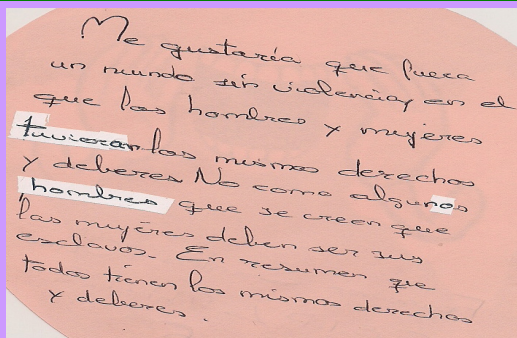 Me gustaría que fuera
un mundo sin violencia, en el
que los hombres y mujeres
tuvieran los mismos derechos
y deberes No como algunos
hombres que se creen que
las mujeres deben ser sus
esclavos. En resumen que
todos tienen los mismos derechos
y deberes.